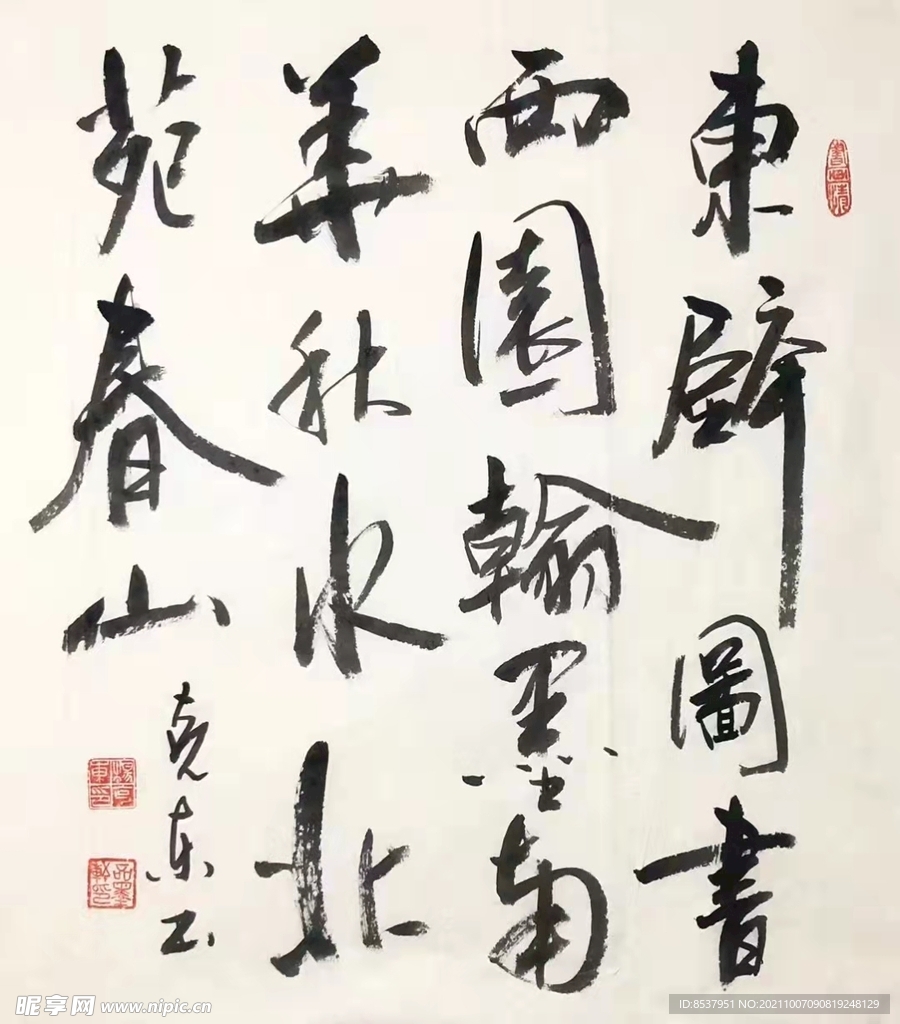 東壁圖書
西園翰墨南
華秋水北
苑春山
克东书
昵享网 www.nipic.cn
ID:8537951 NO:20211007090819248129